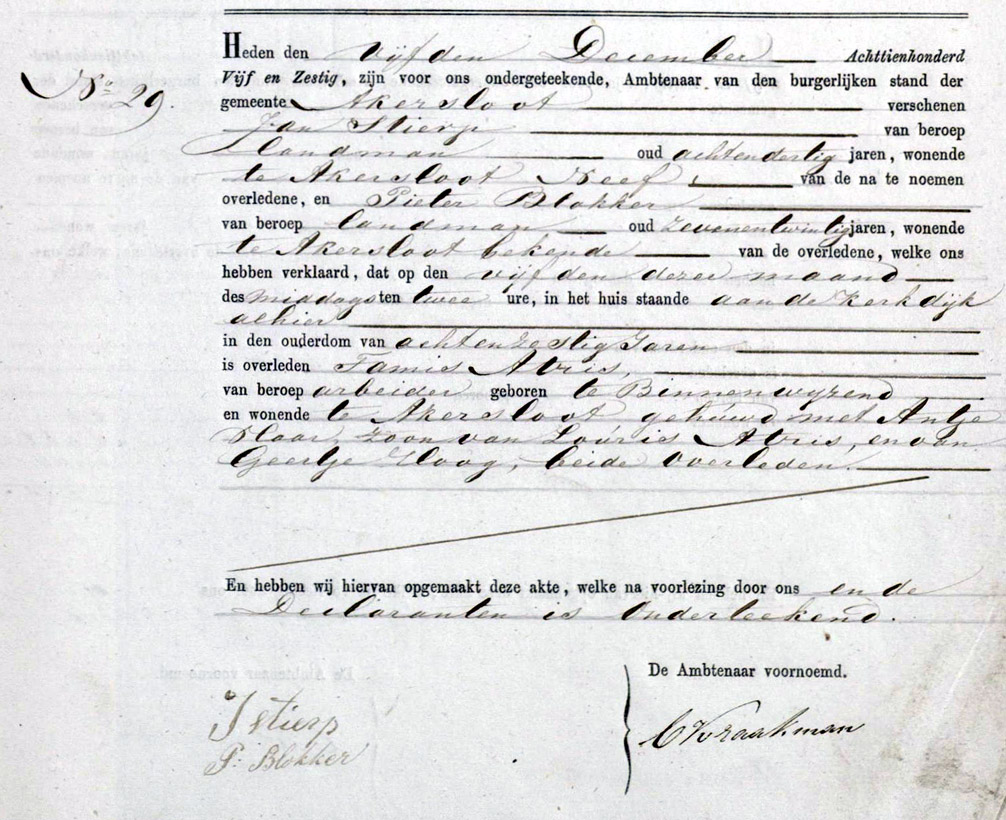 Heden den vijfden December Achttienhonderd
No 29.
Vijf en Zestig, zijn voor ons ondergeteekende, Ambtenaar van den burgerlijken stand der
gemeente Akersloot verschenen
Jan Stierp van beroep
Landman oud achtendertig jaren, wonende
te Akersloot Neef van de na te noemen
overledene, en Pieter Blokker
van beroep landman, oud zevenentwintig jaren, wonende
te Akersloot bekende van de overledene, welke ons
hebben verklaard, dat op den vijfden dezer maand
des middags ten twee ure, in het huis staande aan de Kerkdijk
alhier
in den ouderdom van achtenzestig Jaren
is overleden Famis Abris,
van beroep arbeider geboren te Binnenwyzend
en wonende te Akersloot gehuwd met Antje
Haar, zoon van Louris Abris, en van
Geertje Hoog, beide overleden.
En hebben wij hiervan opgemaakt deze akte, welke na voorlezing door ons en de
Declaranten is onderteekend.
De Ambtenaar voornoemd.
J Stierp
P. Blokker
C Kraakman